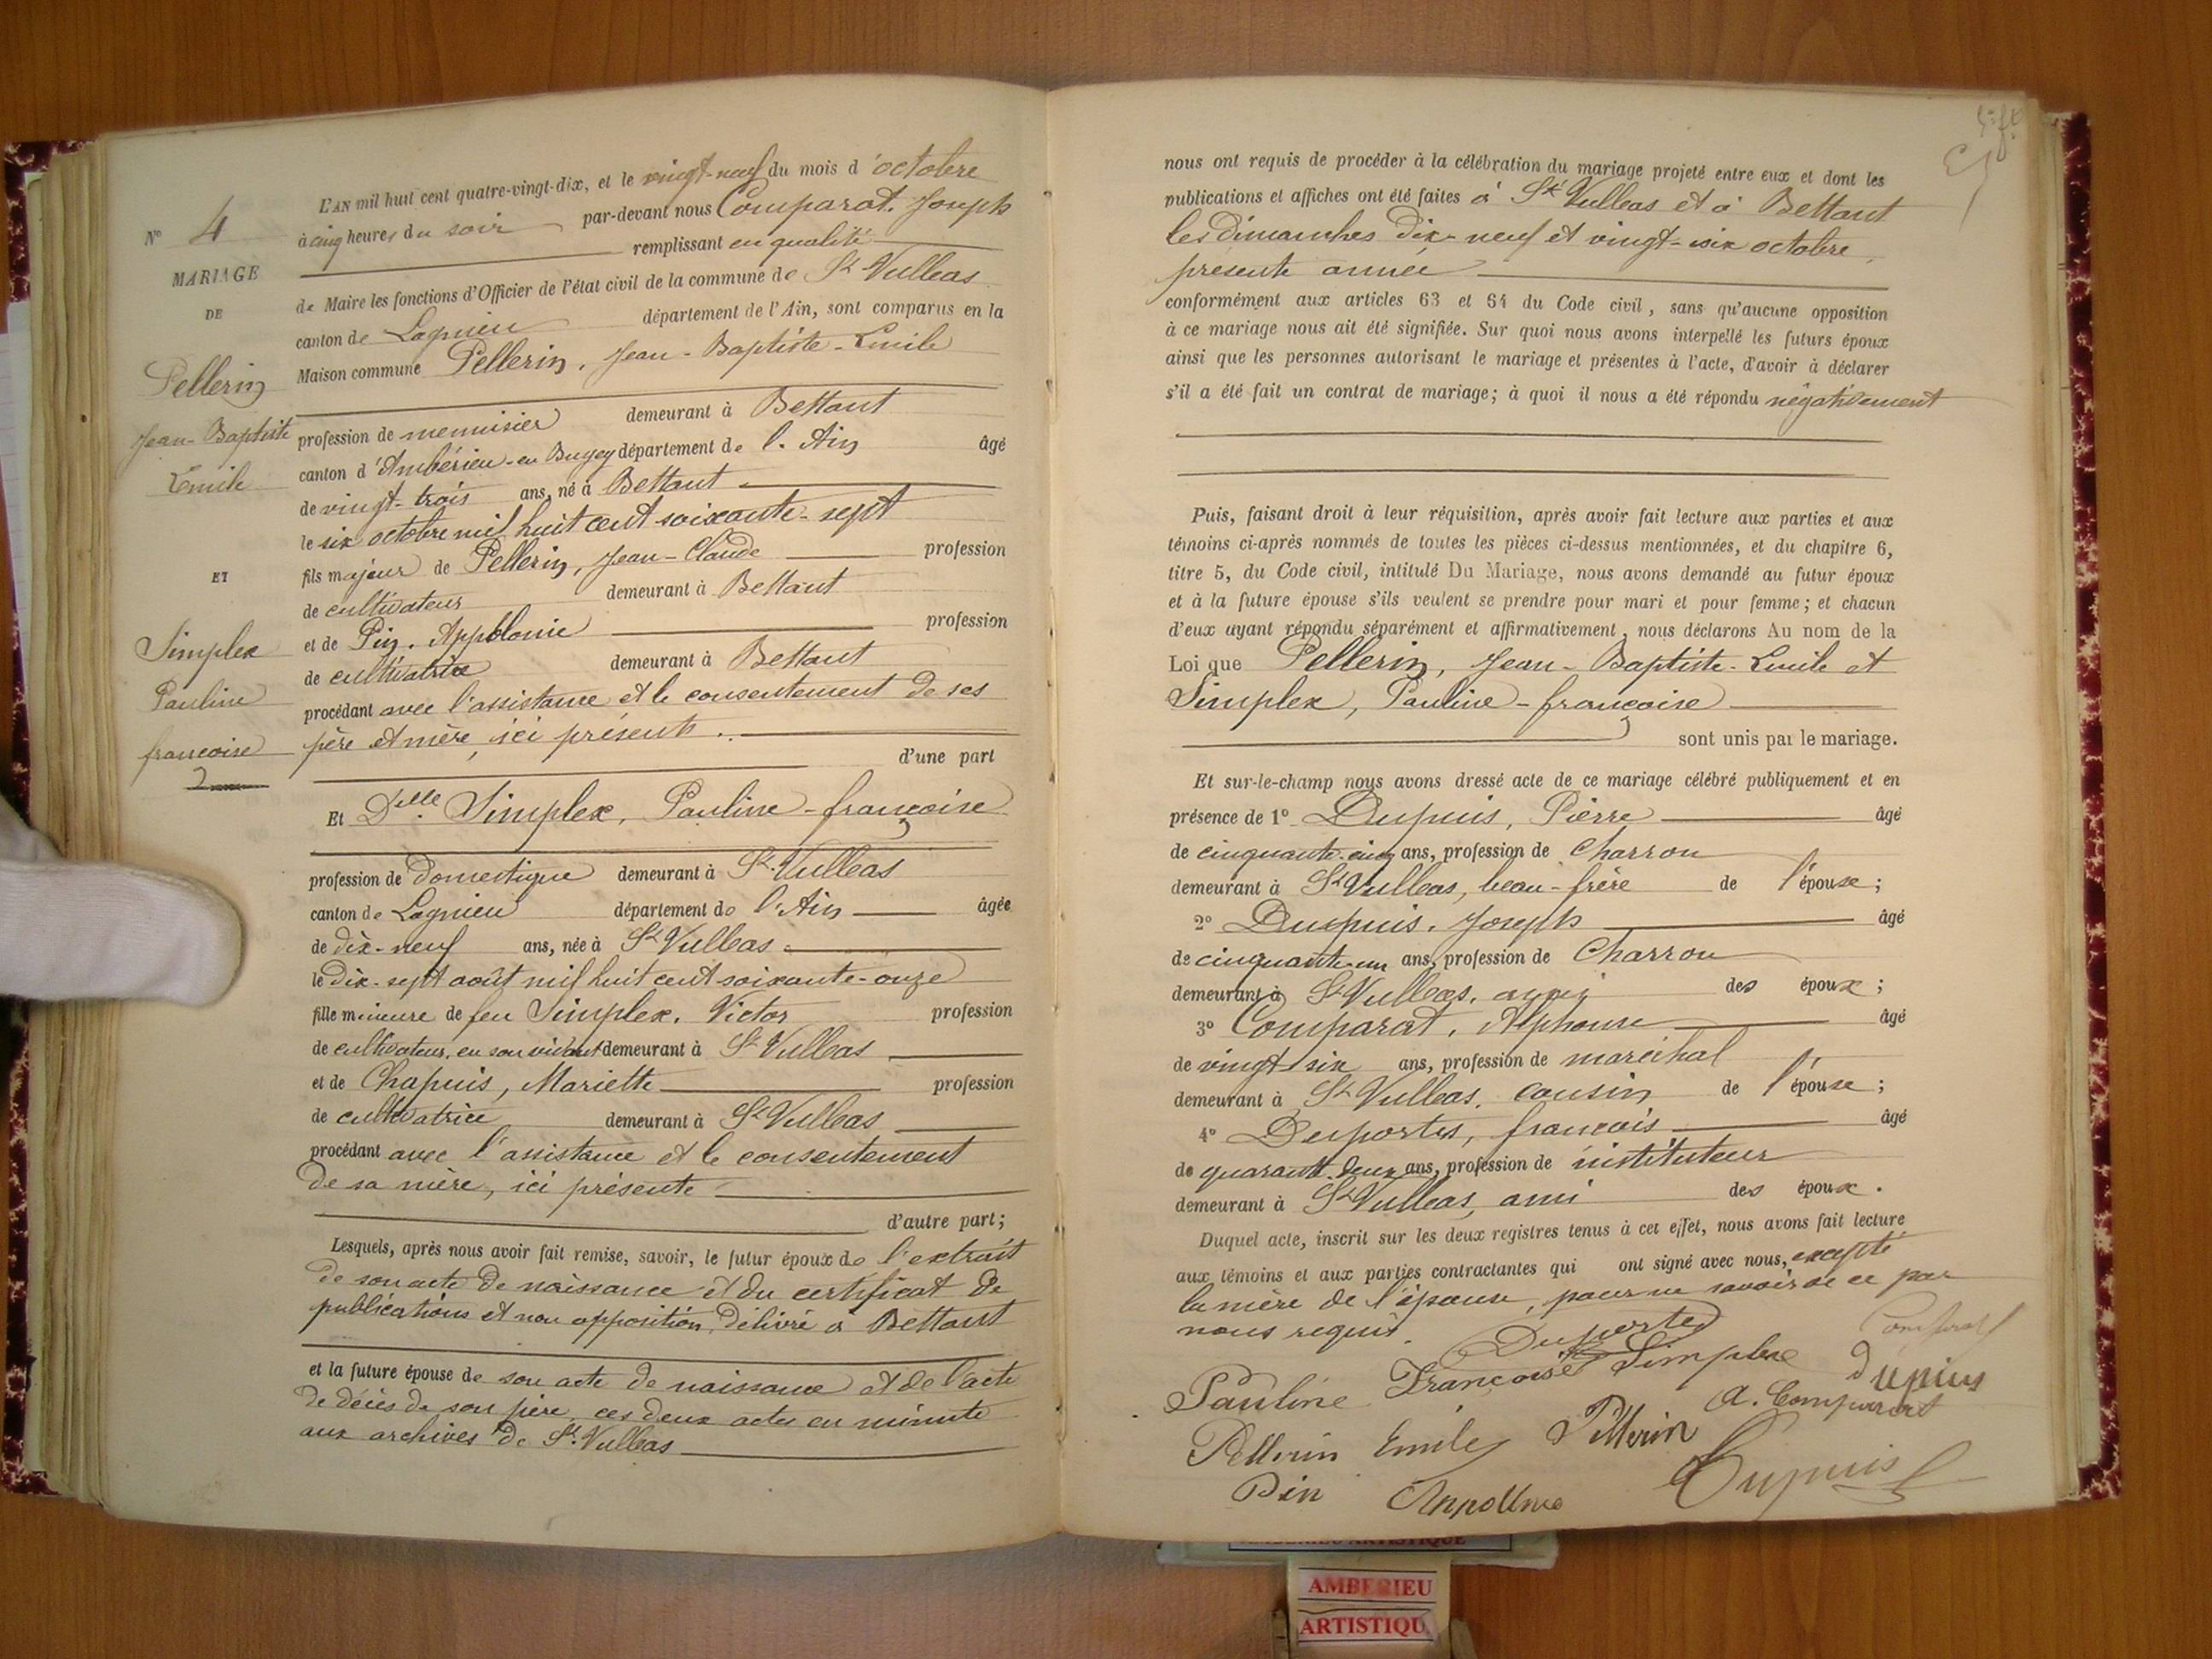 N° 4
MARIAGE
DE
Pellerin
Jean-Baptiste
Emile
ET
Simplex
Pauline
françoise
L'AN mil huit cent quatre-vingt-dix, et le vingt-neuf du mois d'octobre
à cinq heures du soir par-devant nous Comparat, Joseph
remplissant en qualité
de Maire les fonctions d'Officier de l'état civil de la commune de St Vulbas
canton de Lagnieu département de l'Ain, sont comparus en la
Maison commune Pellerin, Jean-Baptiste-Emile
profession de menuisier demeurant à Bettant
canton d'Ambérieu-en Bugey département de l'Ain âgé
de vingt-trois ans, né à Bettant
le six octobre mil huit cent soixante-sept
fils majeur de Pellerin, Jean-Claude profession
de cultivateur demeurant à Bettant
et de Pin, Appolonie profession
de cultivatrice demeurant à Bettant
procédant avec l'assistance et le consentement de ses
père et mère, ici présents.
d'une part
Et Delle Simplex, Pauline-françoise
profession de domestique demeurant à St Vulbas
canton de Lagnieu département de l'Ain âgée
de dix-neuf ans, née à St Vulbas
le dix-sept août mil huit cent soixante-onze
fille mineure de feu Simplex, Victor profession
de cultivateur, en son vivant demeurant à St Vulbas
et de Chapuis, Mariette profession
de cultivatrice demeurant à St Vulbas
procédant avec l'assistance et le consentement
de sa mère, ici présente
d'autre part;
Lesquels, après nous avoir fait remise, savoir, le futur époux de l'extrait
de son acte de naissance et du certificat de
publications et non opposition, délivré à Bettant
et la future épouse de son acte de naissance et de l'acte
de décès de son père, ces deux actes en minute
aux archives de St. Vulbas
nous ont requis de procéder à la célébration du mariage projeté entre eux et dont les
publications et affiches ont été faites à St Vulbas et à Bettant
les dimanches dix-neuf et vingt-six octobre,
présente année
conformément aux articles 63 et 64 du Code civil, sans qu'aucune opposition
à ce mariage nous ait été signifiée. Sur quoi nous avons interpellé les futurs époux
ainsi que les personnes autorisant le mariage et présentes à l'acte, d'avoir à déclarer
s'il a été fait un contrat de mariage; à quoi il nous a été répondu négativement
Puis, faisant droit à leur réquisition, après avoir fait lecture aux parties et aux
témoins ci-après nommés de toutes les pièces ci-dessus mentionnées, et du chapitre 6,
titre 5, du Code civil, intitulé Du Mariage, nous avons demandé au futur époux
et à la future épouse s'ils veulent se prendre pour mari et pour femme; et chacun
d'eux ayant répondu séparément et affirmativement, nous déclarons Au nom de la
Loi que Pellerin, Jean-Baptiste-Emile et
Simplex, Pauline-françoise
sont unis par le mariage.
Et sur-le-champ nous avons dressé acte de ce mariage célébré publiquement et en
présence de 1° Dupuis, Pierre âgé
de cinquante-cinq ans, profession de Charron
demeurant à St Vulbas, beau-frère de l'épouse;
2° Dupuis, Joseph âgé
de cinquante-un ans, profession de Charron
demeurant à St Vulbas, ami des époux;
3° Comparat, Alphonse âgé
de vingt six ans, profession de maréchal
demeurant à St Vulbas, cousin de l'épouse;
4° Desportes, françois âgé
de quarante deux ans, profession de instituteur
demeurant à St Vulbas, ami des époux.
Duquel acte, inscrit sur les deux registres tenus à cet effet, nous avons fait lecture
aux témoins et aux parties contractantes qui ont signé avec nous, excepté
la mère de l'épouse, pour ne savoir de ce par
nous requis.
Desportes Comparat
Pauline Françoise Simplex Dupuis
A. Comparat
Pellerin Emile Pellerin
Dupuis
Pin Appolonie
AMBERIEU ARTISTIQUE
AMBERIEU
ARTISTIQU